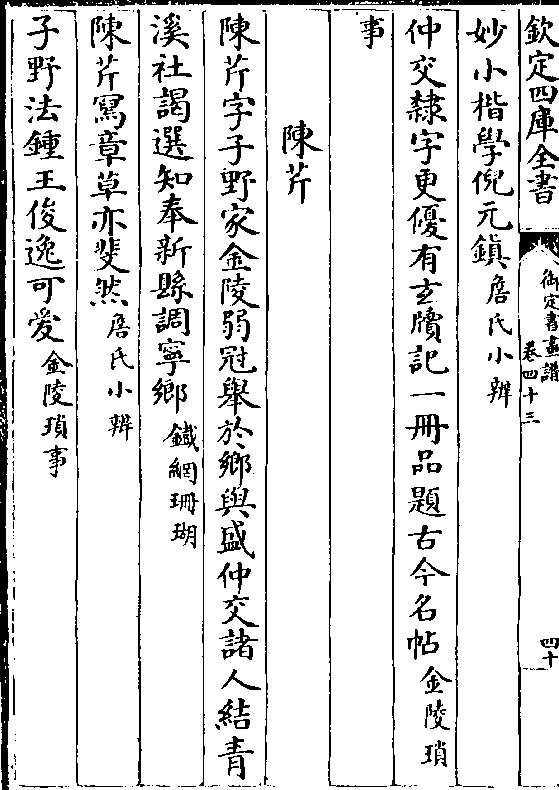 欽定四庫全書
御定書畫譜
卷四十三
四十
妙小楷學倪元鎮詹氏小辨
仲交隸字更優有玄牘記一冊品題古今名帖金陵瑣
事
陳芹
陳芹字子野家金陵弱冠舉於鄉與盛仲交諸人結青
溪社謁選知奉新縣調寧鄉鐵網珊瑚
陳芹寫章草亦斐然詹氏小辨
子野法鍾王俊逸可愛金陵瑣事